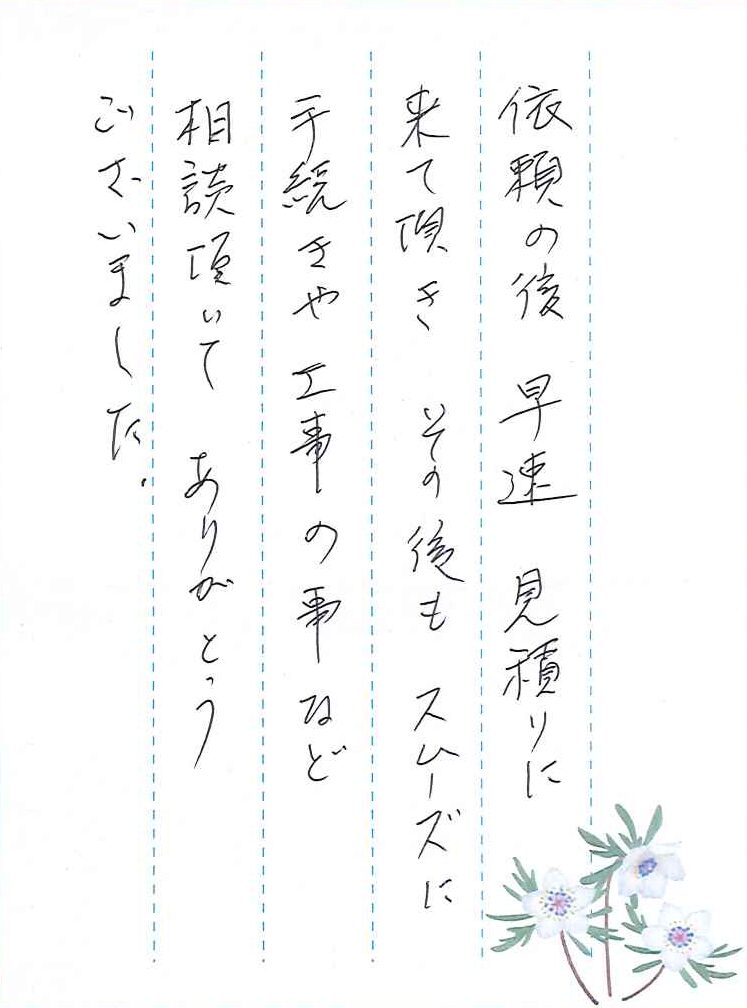 依頼の後 早速 見積りに
来て頂き その後も スムーズに
手続きや 工事の事など
相談頂いて ありがとう
ございました.